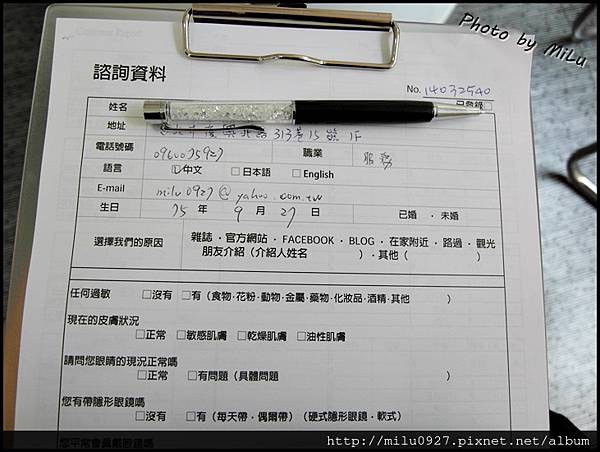 Photo by MiLu
諮詢資料
No. 14032540
姓名 已登錄
地址 復興北路313巷15號 1F
電話號碼 0960075927 職業 服務
語言 □中文 □日本語 □English
E-mail milu0927@yahoo.com.tw
生日 75 年 9 月 27 日 已婚 ・ 未婚
選擇我們的原因 雜誌・官方網站・FACEBOOK・BLOG・在家附近・路過・觀光
朋友介紹（介紹人姓名 ）・其他（ ）
任何過敏 □沒有 □有（食物·花粉·動物·金屬·藥物·化妝品·酒精·其他 ）
現在的皮膚狀況
□正常 □敏感肌膚 □乾燥肌膚 □油性肌膚
請問您眼睛的現況正常嗎
□正常 □有問題（具體問題 ）
您有帶隱形眼鏡嗎
□沒有 □有（每天帶・偶爾帶）（硬式隱形眼鏡・軟式）
您平常會戴眼鏡嗎
http://milu0927.pixnet.net/album